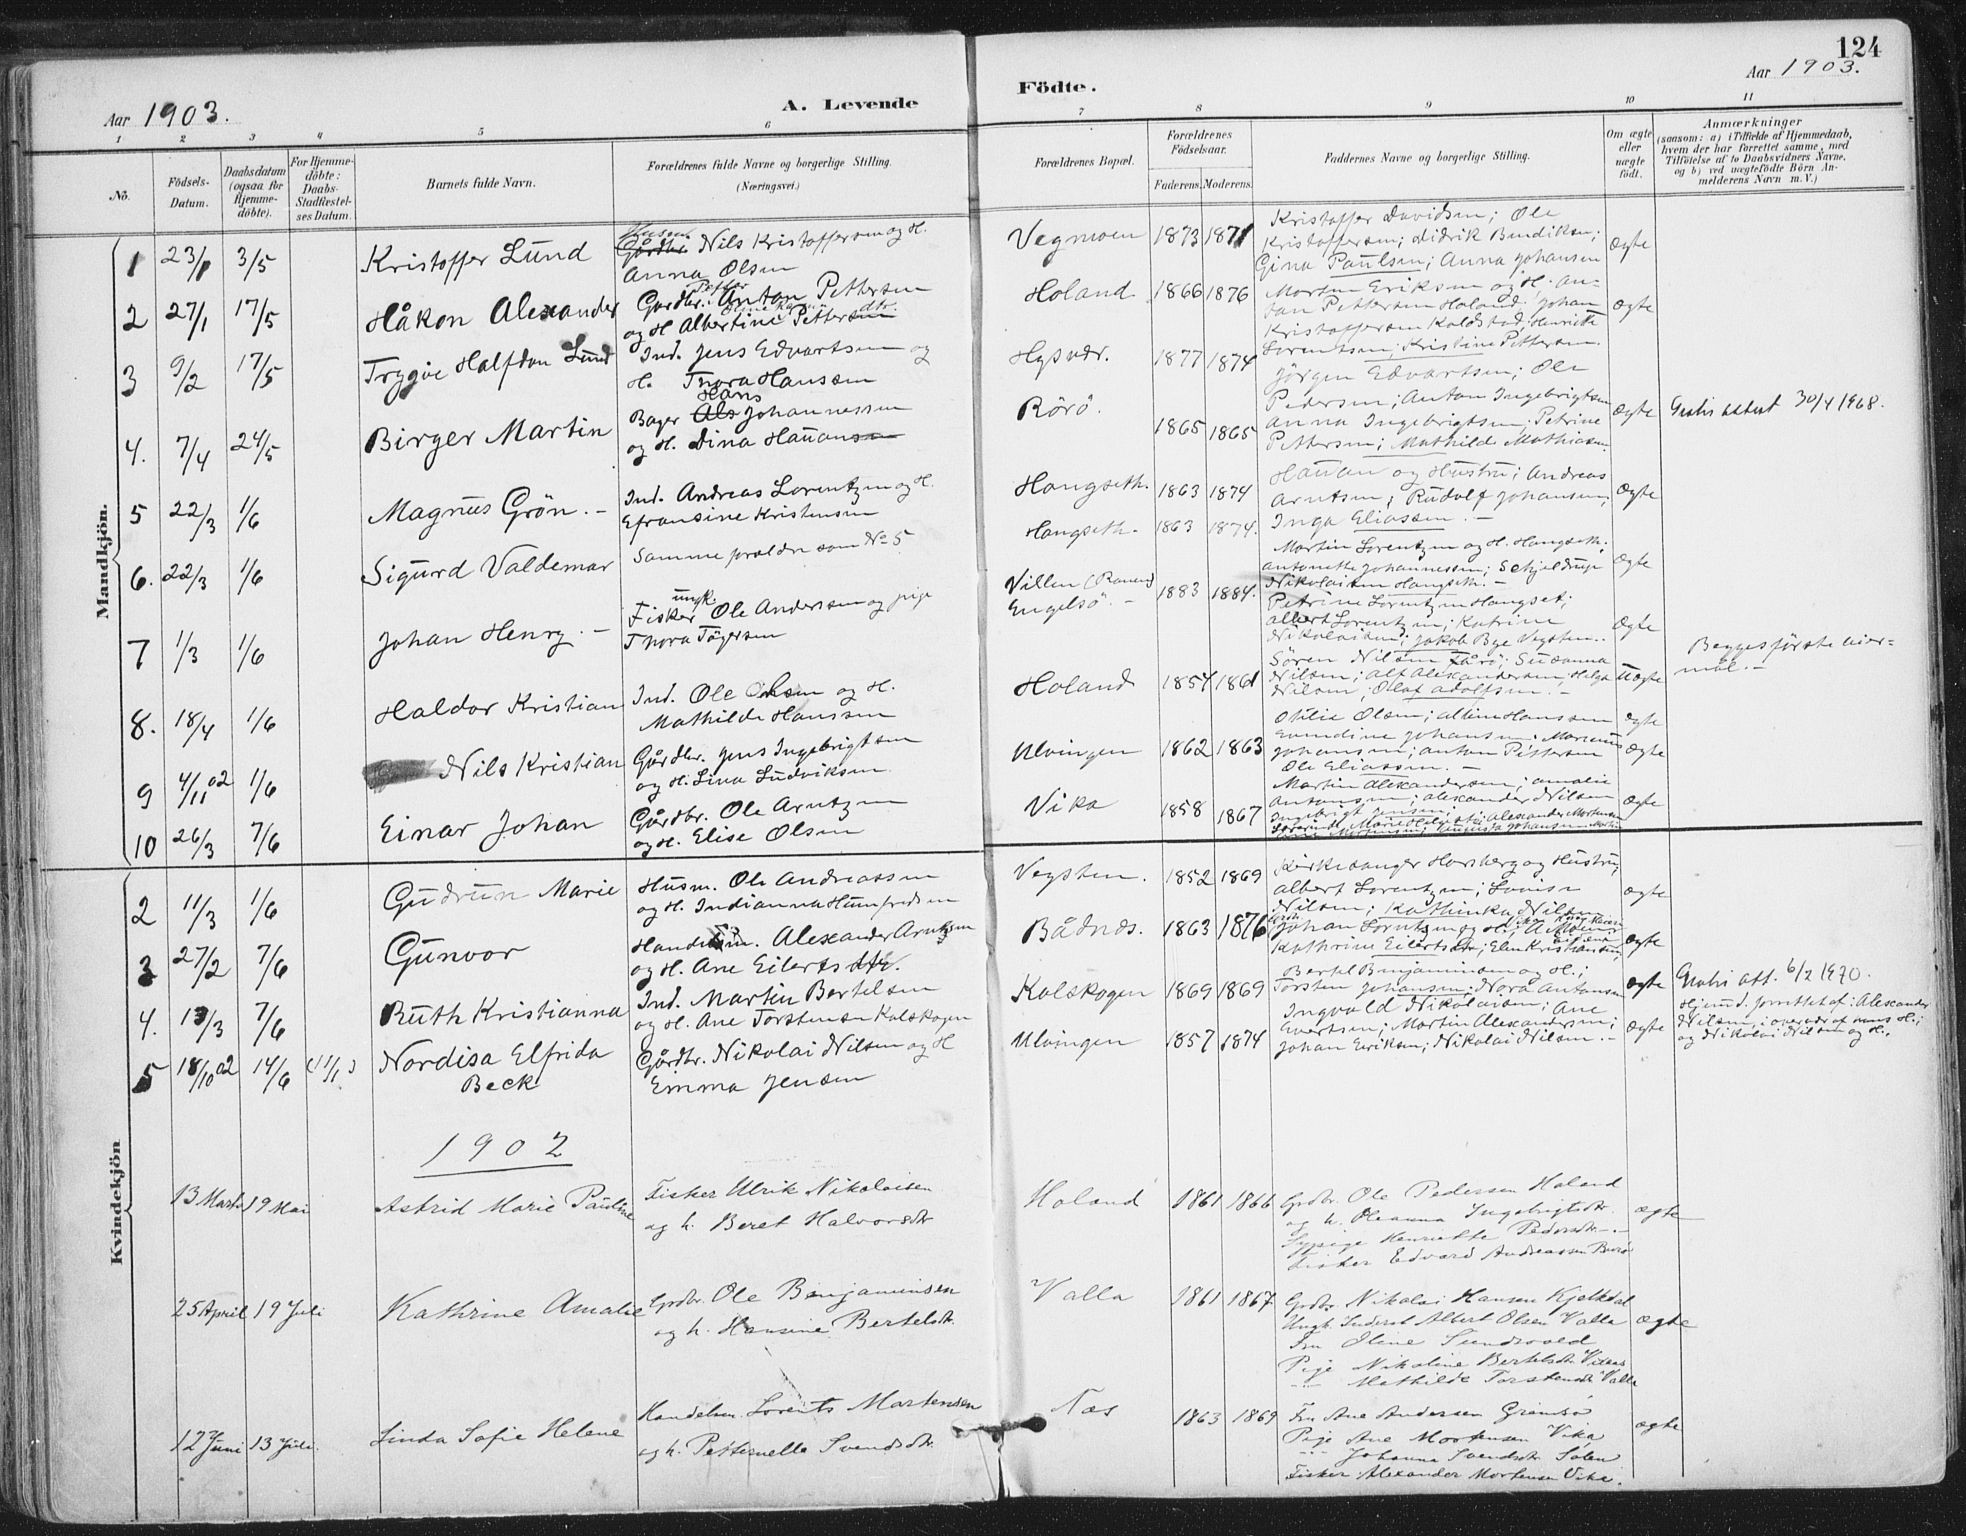 124
Aar 1903.
A. Levende
Födte.
Aar 1903.
1 2 3 4 5 6 7 8 9 10 11
No.
Födsels-Datum.
Daabsdatum (ogsaa for Hjemme-döbte).
For Hjemme-döbte: Daabs-Stadfæstel-ses Datum.
Barnets fulde Navn.
Forældrenes fulde Navne og borgerlige Stilling.
(Næringsvei.)
Forældrenes Bopæl.
Forældrenes Födselsaar.
Faderens. Moderens.
Faddernes Navne og borgerlige Stilling.
Om ægte eller uægte födt.
Anmærkninger
(saasom: a) i Tilfælde af Hjemmedaab,
hvem der har forrettet samme, med
Tilföielse af to Daabsvidners Navne,
og b) ved uægtefödte Börn An-
melderens Navn m. V.)
Mandkjön.
1 23/1 3/5 Kristoffer Lund
Husm. Gårdbr. Nils Kristoffersen og H.
Anna Olsen
Vegmoen 1873 1871
Kristoffer Davidsen; Ole
Kristoffersen; Didrik Bendiksen;
Gina Paulsen; Anna Johansen
ægte
2 27/1 17/5 Håkon Alexander
Gårdbr. Anton Pettersen
og H. Albertine Pettersen
Holand 1866 1876
Morten Eriksen og H. An-
ton Pettersen Holand; Johan
Kristoffersen Kaldstad; Henriette
Lorentsen; Kristine Pettersen.
ægte
3 9/2 17/5 Trygve Halfdan Lund
Ind. Jens Edvartsen og
H. Thora Hansen
Hysvær. 1877 1874
Jörgen Edvartsen; Ole
Pedersen; Anton Ingebrigtsen
Anna Ingebrigtsen; Petrine
Pettersen; Mathild Mathiasen
ægte Gratis attest 30/4 1968.
4. 7/4 24/5 Birger Martin
Hans
Bager Als Johannessen
og H. Dina Hauansen
Rörö. 1865 1865
Hauan og Hustru; Andreas
Arntsen; Rudolf Johansen;
Inga Eliassen. -
ægte
5 22/3 1/6 Magnus Grön. -
Ind. Andreas Lorentzen og H.
Efransine Kristensen
Hongseth. 1863 1874
Martin Lorentzen og H. Hongseth;
Antonette Johannessen; Schjeldrup
Nikolaisen Hangseth. -
ægte
6. 22/3 1/6 Sigurd Valdemar
Samme forældre som No 5
Hangseth. 1863 1874.
Petrine Lorentzen Hangset;
Albert Lorentzen; Katrine
Nikolaisen; Jakob Bye Vegsten.
ægte
7 1/3 1/6 Johan Henry. -
ungk.
Fisker Ole Andersen og pige
Thora Tögersen
Villen (Ranen)
Engelsö. - 1883 1884.
Sören Nilsen Tårö; Susanna
Nilsen; Alf Alexandersen; Helga
Nilsen; Olaf Adolfsen. -
Uægte
Begges förste leier-
mål. -
8. 18/4 1/6 Haldor Kristian
Ind. Ole Olsen og H.
Mathilde Hanssen
Holand 1854 1861
Otilie Olsen; Albin Hanssen
ægte
9 4/11 02 1/6 Nils Kristian
Gårdbr. Jens Ingebrigtsen
og H. Lina Ludviksen.
Ulvingen 1862 1863
Johansen; Anton Pettersen
Ole Eliassen. -
ægte
10 26/3 7/6 Einar Johan
Gårdbr. Ole Arntzen
og H. Elise Olsen
Vika 1858 1867
Martin Alexandersen; Amalie
Antonsen; Alexander Nilsen
ægte
Kvindekjön
2 11/3 1/6 Gudrun Marie
Husm. Ole Andreassen
og H. Indianna Humfredsen
Vegsten. 1852 1869
Kirkesanger Horsberg og Hustru;
Albert Lorentzen; Lovise
Nilsen; Kathinka Nilsen
ægte
3 27/2 7/6 Gunvor
Handelsm. Alexander Arntzen
og H. Ane Eilertsdtr.
Bådnes. 1863 1876
Johan Lorntzen og H.;
Kathrine Eilertsen; Elen Kristiansen
ægte
4. 13/3 7/6 Ruth Kristianna
Ind. Martin Bertelsen
og H. Ane Torstensen Kalskogen
Kalskogen 1869 1869
Bertel Benjaminsen og H.;
Torsten Johansen; Nora Antonsen
ægte Gratis att. 6/2 1970.
5 18/10 02 14/6 (11/1) Nordisa Elfrida
Beck
Gårdbr. Nikolai Nilsen og H
Emma Jensen
Ulvingen 1857 1874
Ingvald Nikolaisen; Ane
Evertsen; Martin Alexandersen;
Johan Eriksen; Nikolai Nilsen. -
ægte
Hjemd. forrettet af: Alexander
Nilsen, i overvær af hans H.;
og Nikolai Nilsen og H.
1902
13 Marts 19 Mai Astrid Marie Pauline
Fisker Ulrik Nikolaisen
og h. Beret Halvorsdtr
Holand 1861 1866
Grdbr. Ole Pedersen Holand
og h. Oleanna Ingebrigtsdtr.
Sypige Henriette Pedersdtr. -
Fisker Edvard Andreassen
ægte
25 April 19 Juli Kathrine Amalie
Grdbr. Ole Benjaminsen
og h. Hansine Bertelsdtr.
Valla 1861 1867
Grdbr. Nikolai Hansen Kjelkdal
Ungk. Inderst Albert Olsen Valla
Fru Iline Sundsvold
Pige Nikoline Bertelsdtr
-"- Mathilde Torstensdtr Valla
ægte
12 Juni 13 Juli. Linda Sofie Helene
Handelsm. Lorents Mortensen
og h. Petternelle Svendsdtr.
Næs 1863 1869
Fru Ane Andersen Grimsö
Pige Ane Mortensen Vika
-"- Johanna Svendsdtr Solen
Fisker Alexander Mortensen Vika.
ægte